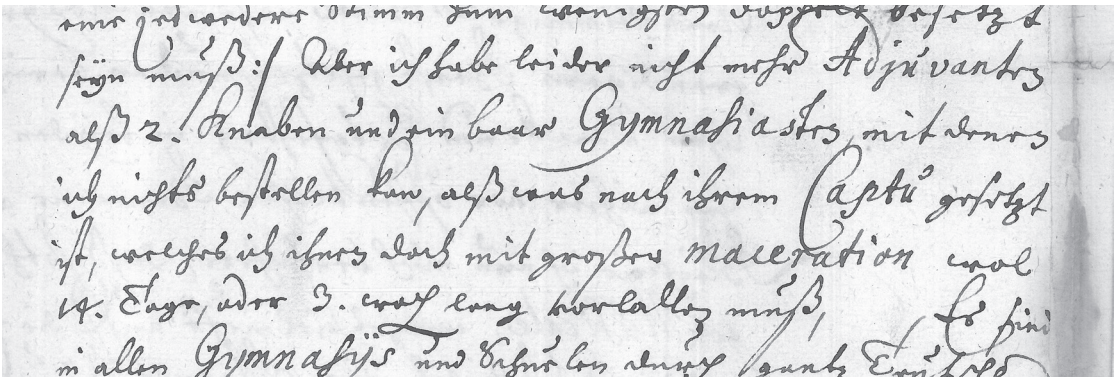 eine jedwedere Stimm zum wenigsten doppelt besetzt
seyn muß:/ Aber ich habe leider nicht mehr Adjuvanten
alß 2. Knaben und ein baar Gymnasiasten, mit denen
ich nichts bestellen kan, alß was nach ihrem Captu gesetzt
ist, welches ich ihnen doch mit großer maceration wol
14. Tage, oder 3. woch lang vorlallen muß, Es sind
in allen Gymnasijs und Schuelen durch gantz Teutsch